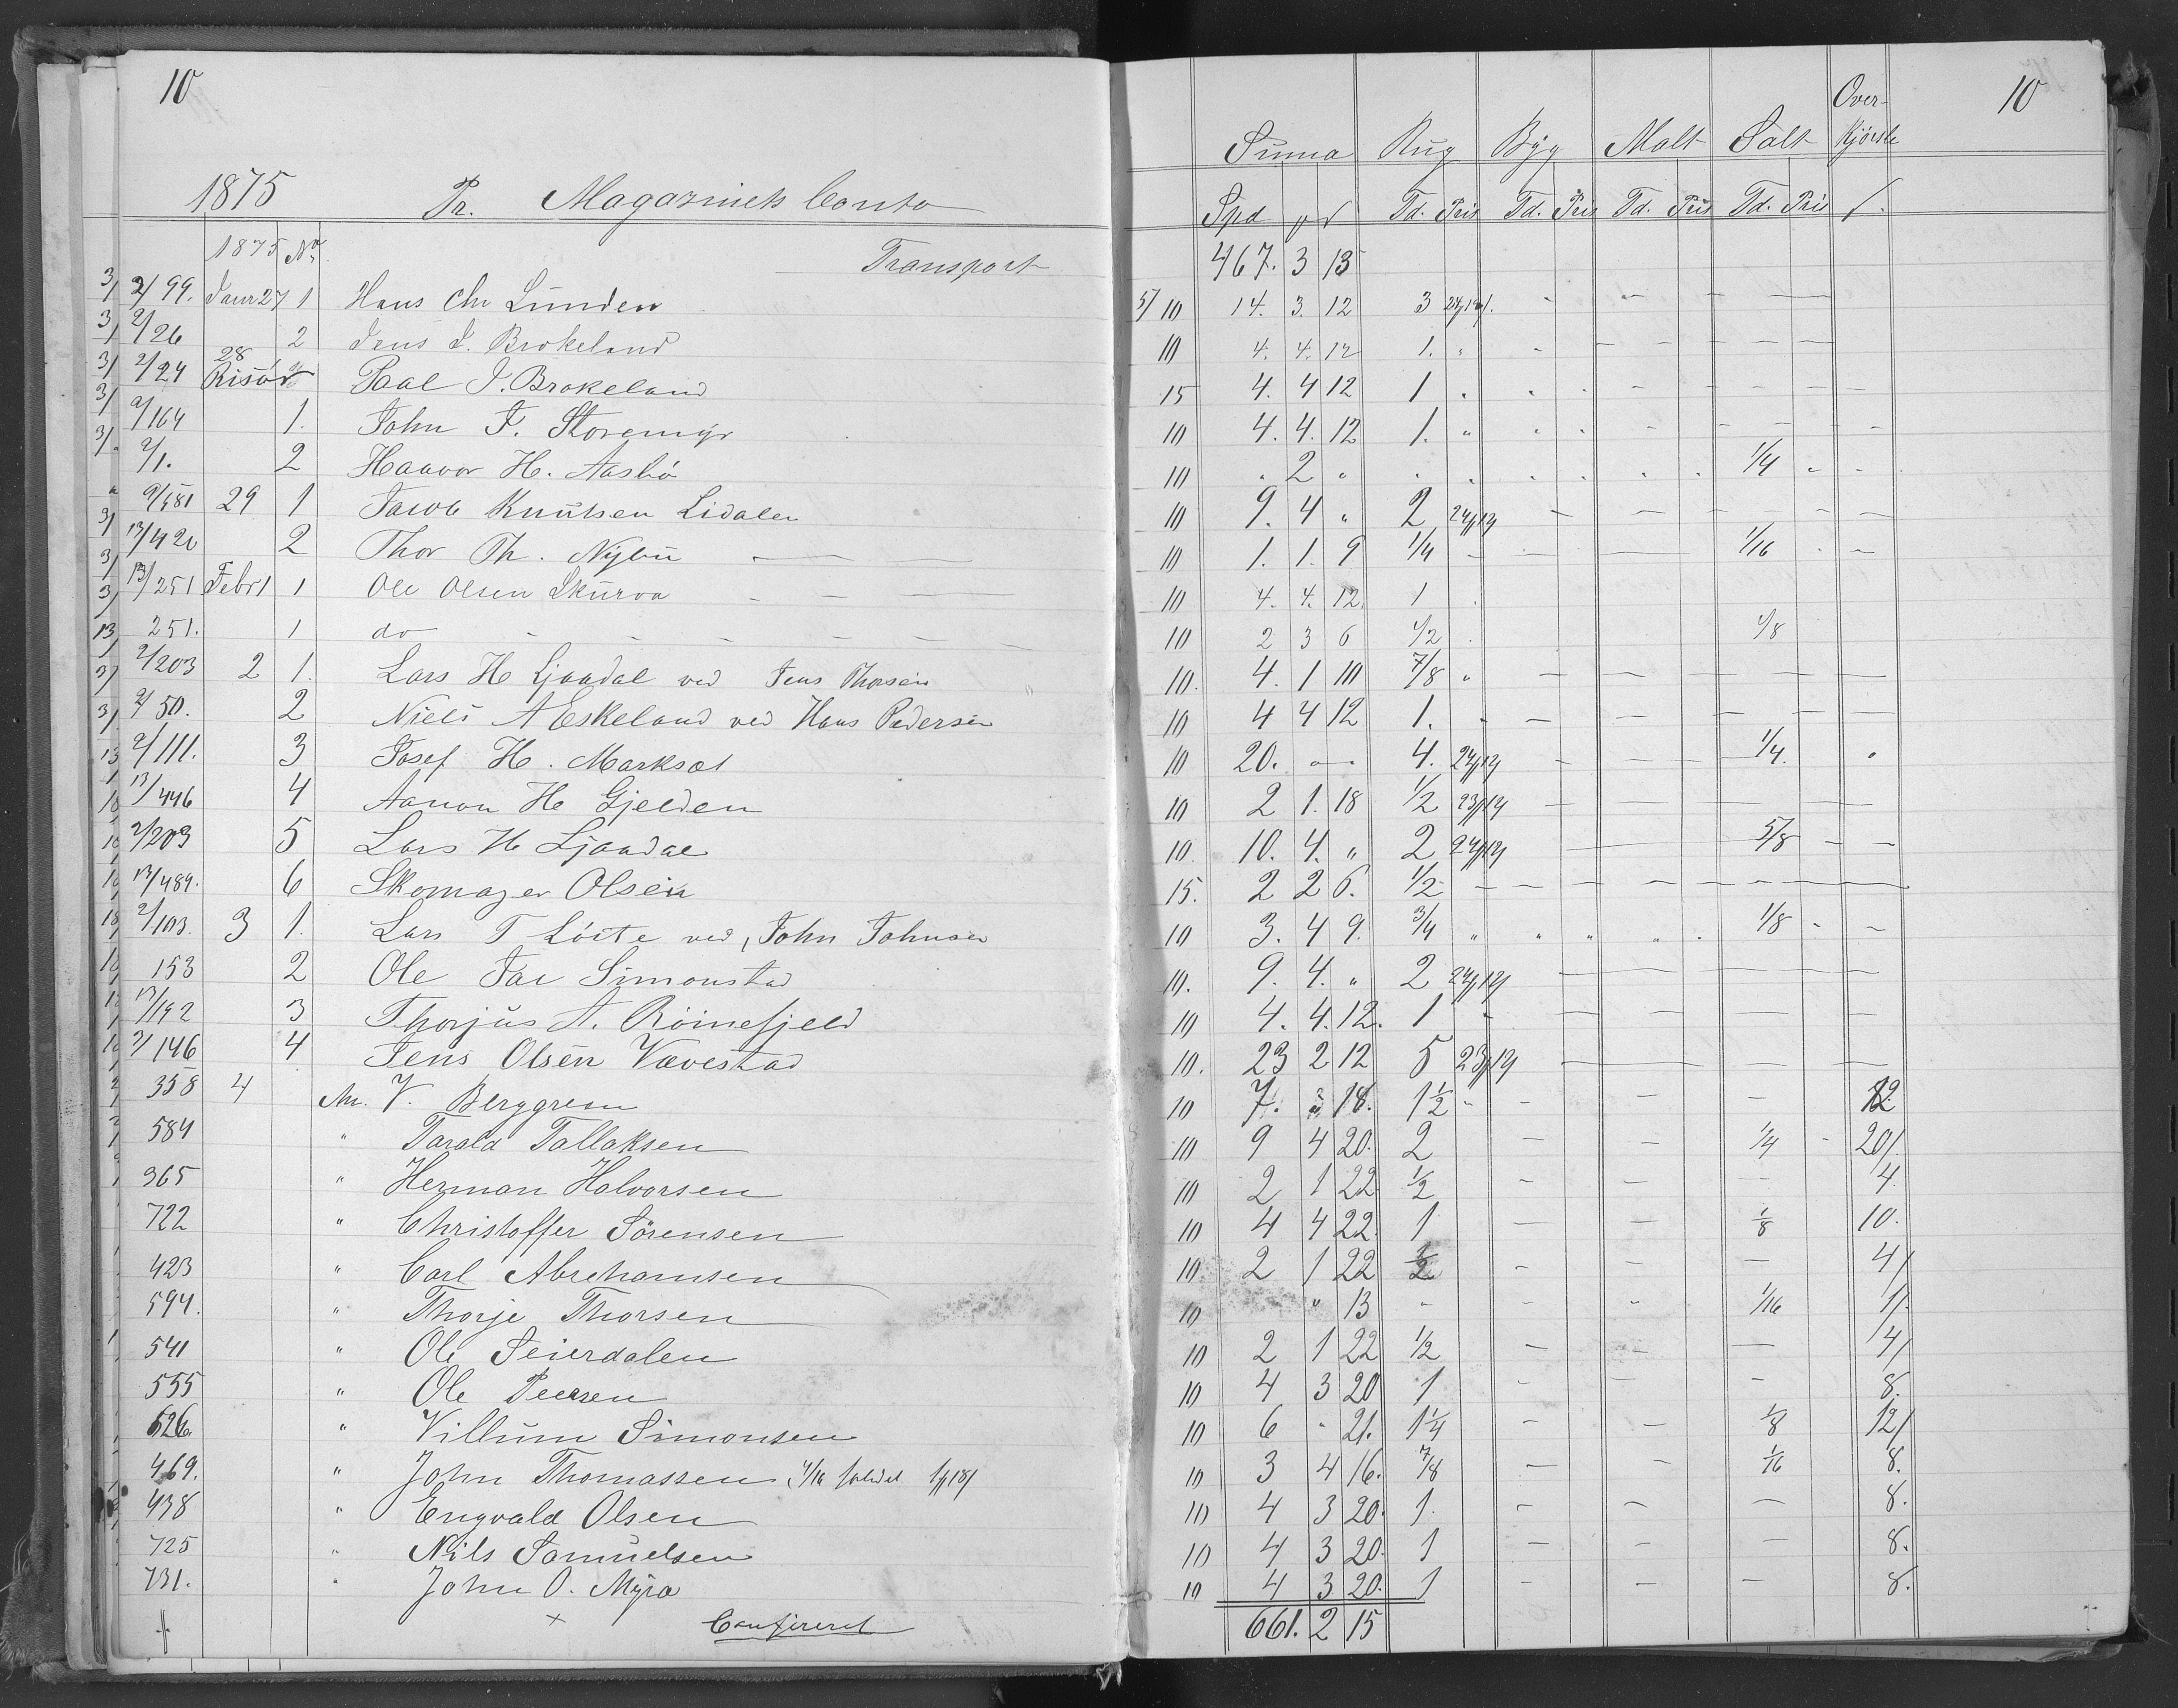 10
1875 Pr. Magazinets Conto
1875 No. Transport
3/ 2/99. Januar 27 1 Hans Chr Lunden
3/ 2/26 2 Jens J. Brokeland
3/ 2/24 28 Risør Paal J. Brokeland
3/ 2/164 1. John F. Storemyr
3/ 2/1. 2 Haavor H. Aasbø
29 1 Jacob Knutsen Lidalen
3/ 13/420 2 Thor Th. Nybu
3/ 13/251 Febr 1 1 Ole Olsen Skurva
251. 1 do
2/203 2 1. Lars H Ljaadal ved Jens Thorsen
3/ 2/50. 2 Niels A Eskeland ved Hans Pedersen
3/ 2/111. 3 Josef H. Marksæt
13/446 4 Aanon H Gjelden
2/203 5 Lars H Ljaadal
13/489. 6 Skomager Olsen
2/103. 3 1. Lars T Løite ved, John Johnsen
153 2 Ole Jac Simonstad
13/192 3 Thorjus A. Röinefjeld
2/146 4 Jens Olsen Vævestad
358 4 An. V. Berggren
584 " Tarald Tallaksen
365 " Herman Halvorsen
722 " Christoffer Sörensen
423 " Carl Abrehamsen
594. " Thorje Thorsen
541 " Ole Seierdalen
555 " Ole Peersen
526. " Villum Simonsen
469. " John Thomassen
438 " Engvald Olsen
725 " Nils Samuelsen
731. " John O. Myra
Confereret
10
Over-
Summa Rug Byg Malt Salt Kjørsle
Spd Td. Pris Td. Pris Td. Pris Td. Pris
467. 3 13
5/10 14. 3. 12 3
10 4. 4. 12 1. "
15 4. 4 12 1 "
10 4. 4. 12 1. "
10 " 2 " 1/4
10 9. 4 " 2
10 1. 1. 9 1/4 1/16
10 4. 4. 12. 1
10 2 3 6 1/2 1/8
10. 4. 1 10 7/8 "
10 4 4 12 1.
10 20. 4. 1/4.
10 2 1. 18 1/2
10. 10. 4. " 2 5/8
15. 2 2 6. 1/2
10 3. 4 9. 3/4 1/8
10. 9. 4. " 2
10 4. 4. 12. 1
10. 23 2 12 5
10 7. 18. 1 1/2 12
10 9 4 20. 2 1/4 20
10 2 1 22 1/2 4
10 4 4 22. 1 1/8 10.
10 2 1 22 1/2 4
10 " 13 1/16 1
10 2 1 22 1/2 4
10 4 3 20 1 8.
10 6 - 21. 1 1/4 1/8 12
10 3 4 16. 7/8 1/16 8.
10 4 3 20. 1. 8.
10 4 3 20. 1 8.
10 4 3 20. 1 8.
661. 2 15